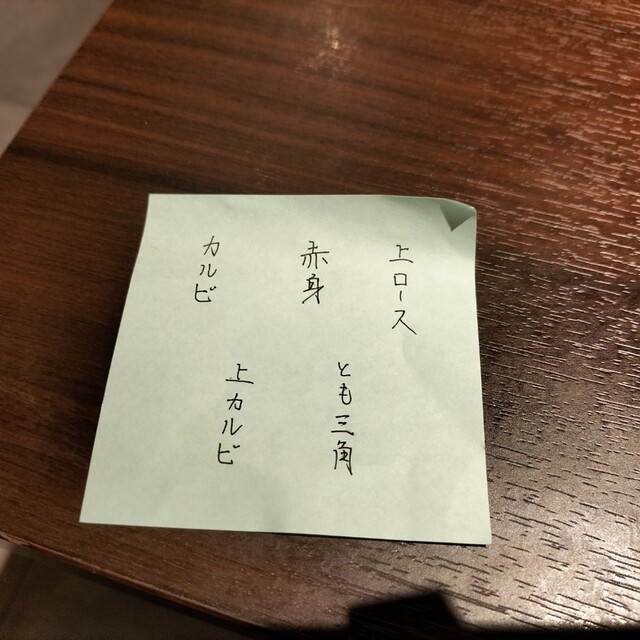 上ロース
とも三角
赤身
上カルビ
カルビ